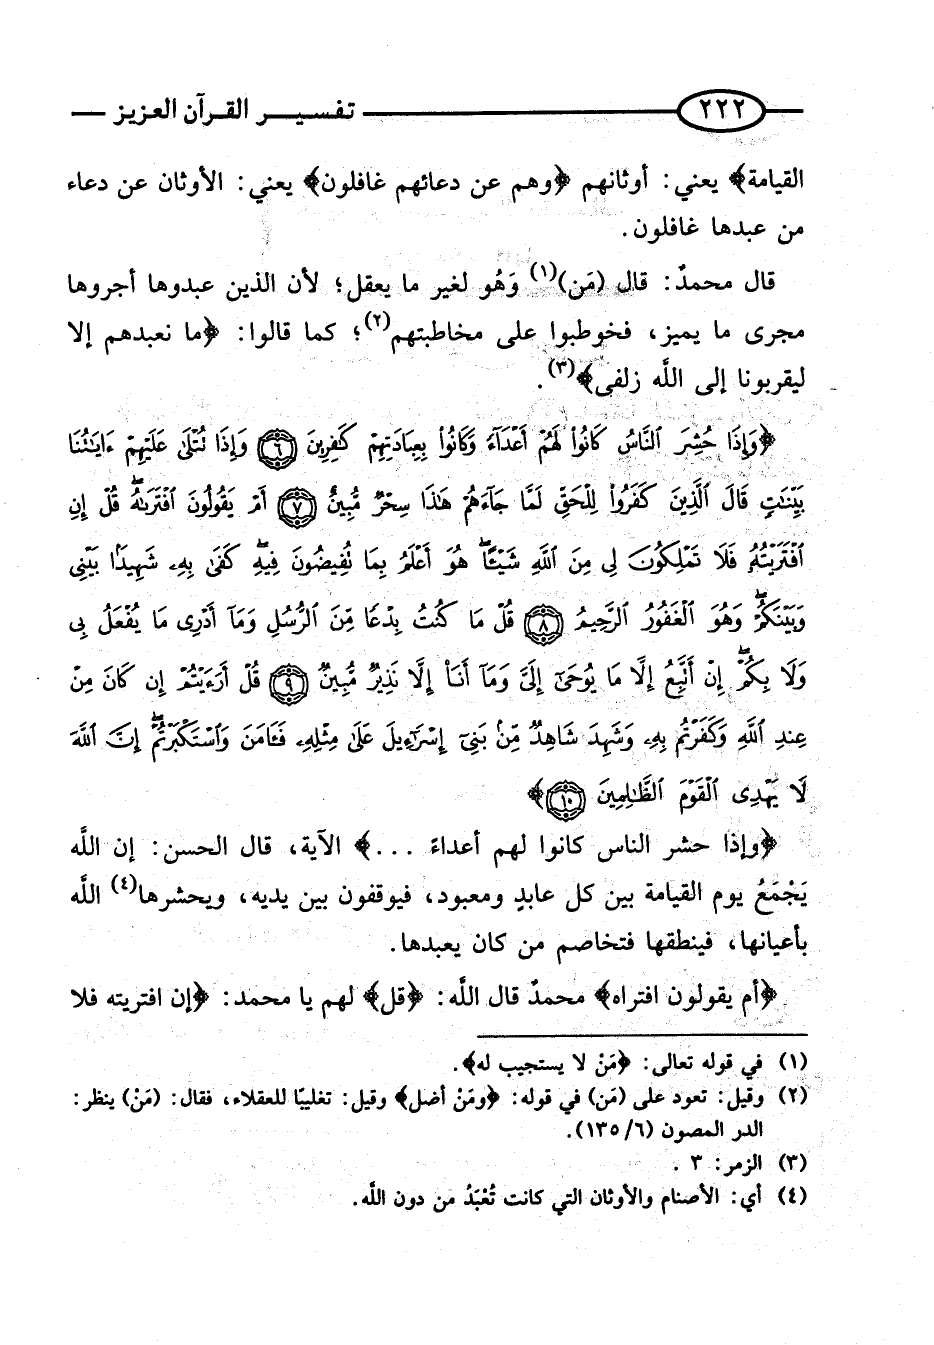 ٢٢٢ تفسير القرآن العزيز
القيامة﴾ يعني: أوثانهم ﴿وهم عن دعائهم غافلون﴾ يعني: الأوثان عن دعاء
من عبدها غافلون.
قال محمدٌ: قال (مَن)(١) وَهُو لغير ما يعقل؛ لأن الذين عبدوها أجروها
مجرى ما يميز، فخوطبوا على مخاطبتهم(٢)؛ كما قالوا: ﴿ما نعبدهم إلا
ليقربونا إلى اللَّه زلفى﴾(٣).
﴿وَإِذَا حُشِرَ ٱلنَّاسُ كَانُوا۟ لَهُمْ أَعْدَآءً وَكَانُوا۟ بِعِبَادَتِهِمْ كَٰفِرِينَ ٦ وَإِذَا تُتْلَىٰ عَلَيْهِمْ ءَايَٰتُنَا
بَيِّنَٰتٍ قَالَ ٱلَّذِينَ كَفَرُوا۟ لِلْحَقِّ لَمَّا جَآءَهُمْ هَٰذَا سِحْرٌ مُّبِينٌ ٧ أَمْ يَقُولُونَ ٱفْتَرَىٰهُ ۖ قُلْ إِنِ
ٱفْتَرَيْتُهُۥ فَلَا تَمْلِكُونَ لِى مِنَ ٱللَّهِ شَيْـًٔا ۖ هُوَ أَعْلَمُ بِمَا تُفِيضُونَ فِيهِ ۖ كَفَىٰ بِهِۦ شَهِيدًۢا بَيْنِى
وَبَيْنَكُمْ ۖ وَهُوَ ٱلْغَفُورُ ٱلرَّحِيمُ ٨ قُلْ مَا كُنتُ بِدْعًا مِّنَ ٱلرُّسُلِ وَمَآ أَدْرِى مَا يُفْعَلُ بِى
وَلَا بِكُمْ ۖ إِنْ أَتَّبِعُ إِلَّا مَا يُوحَىٰٓ إِلَىَّ وَمَآ أَنَا۠ إِلَّا نَذِيرٌ مُّبِينٌ ٩ قُلْ أَرَءَيْتُمْ إِن كَانَ مِنْ
عِندِ ٱللَّهِ وَكَفَرْتُم بِهِۦ وَشَهِدَ شَاهِدٌ مِّنۢ بَنِىٓ إِسْرَٰٓءِيلَ عَلَىٰ مِثْلِهِۦ فَـَٔامَنَ وَٱسْتَكْبَرْتُمْ ۖ إِنَّ ٱللَّهَ
لَا يَهْدِى ٱلْقَوْمَ ٱلظَّٰلِمِينَ ١٠﴾
﴿وإذا حشر الناس كانوا لهم أعداءً ...﴾ الآية، قال الحسن: إن اللَّه
يَجْمَعُ يوم القيامة بين كل عابدٍ ومعبود، فيوقفون بين يديه، ويحشرها(٤) اللَّه
بأعيانها، فينطقها فتخاصم من كان يعبدها.
﴿أم يقولون افتراه﴾ محمدٌ قال اللَّه: ﴿قل﴾ لهم يا محمد: ﴿إن افتريته فلا
(١) في قوله تعالى: ﴿مَنْ لا يستجيب له﴾.
(٢) وقيل: تعود على (مَن) في قوله: ﴿ومَنْ أضل﴾ وقيل: تغليبًا للعقلاء، فقال: (مَنْ) ينظر:
الدر المصون (٦/ ١٣٥).
(٣) الزمر: ٣ .
(٤) أي: الأصنام والأوثان التي كانت تُعْبَدُ من دون اللَّه.